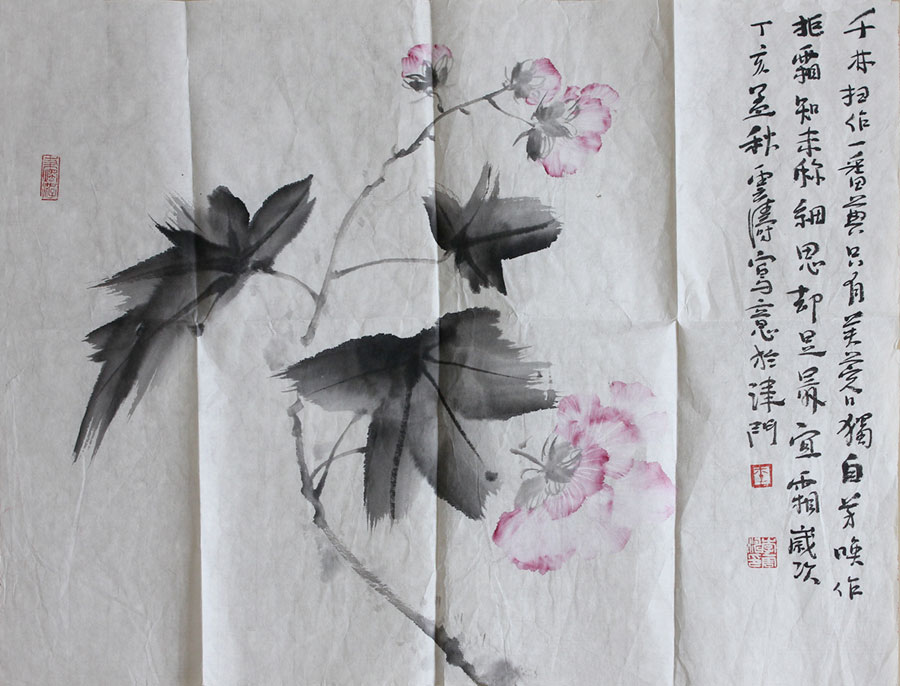 千林扫作一番黄只有芙蓉獨自芳唤作
拒霜知未称細思却是最宜霜歲次
丁亥孟秋雲濤寫意於津門